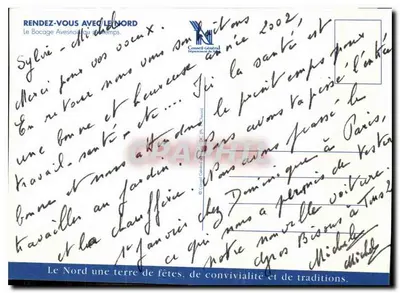 RENDEZ-VOUS AVEC LE NORD
Le Bocage Avesnois au printemps.
Conseil Général
Sylvie - Michel
Merci pour vos voeux.
En retour nous vous souhaitons
une bonne et heureuse année 2002,
travail - santé - etc.... Ici la santé est
bonne et nous attendons le printemps pour
travailler au jardin. Nous avons tapissé l'entrée
et la chaufferie. Nous avons passé le
1er janvier chez Dominique à Paris,
ce qui nous a permis de tester
notre nouvelle voiture.
Gros Bisous à Tous 2
Michele
Michel
Le Nord une terre de fêtes, de convivialité et de traditions.